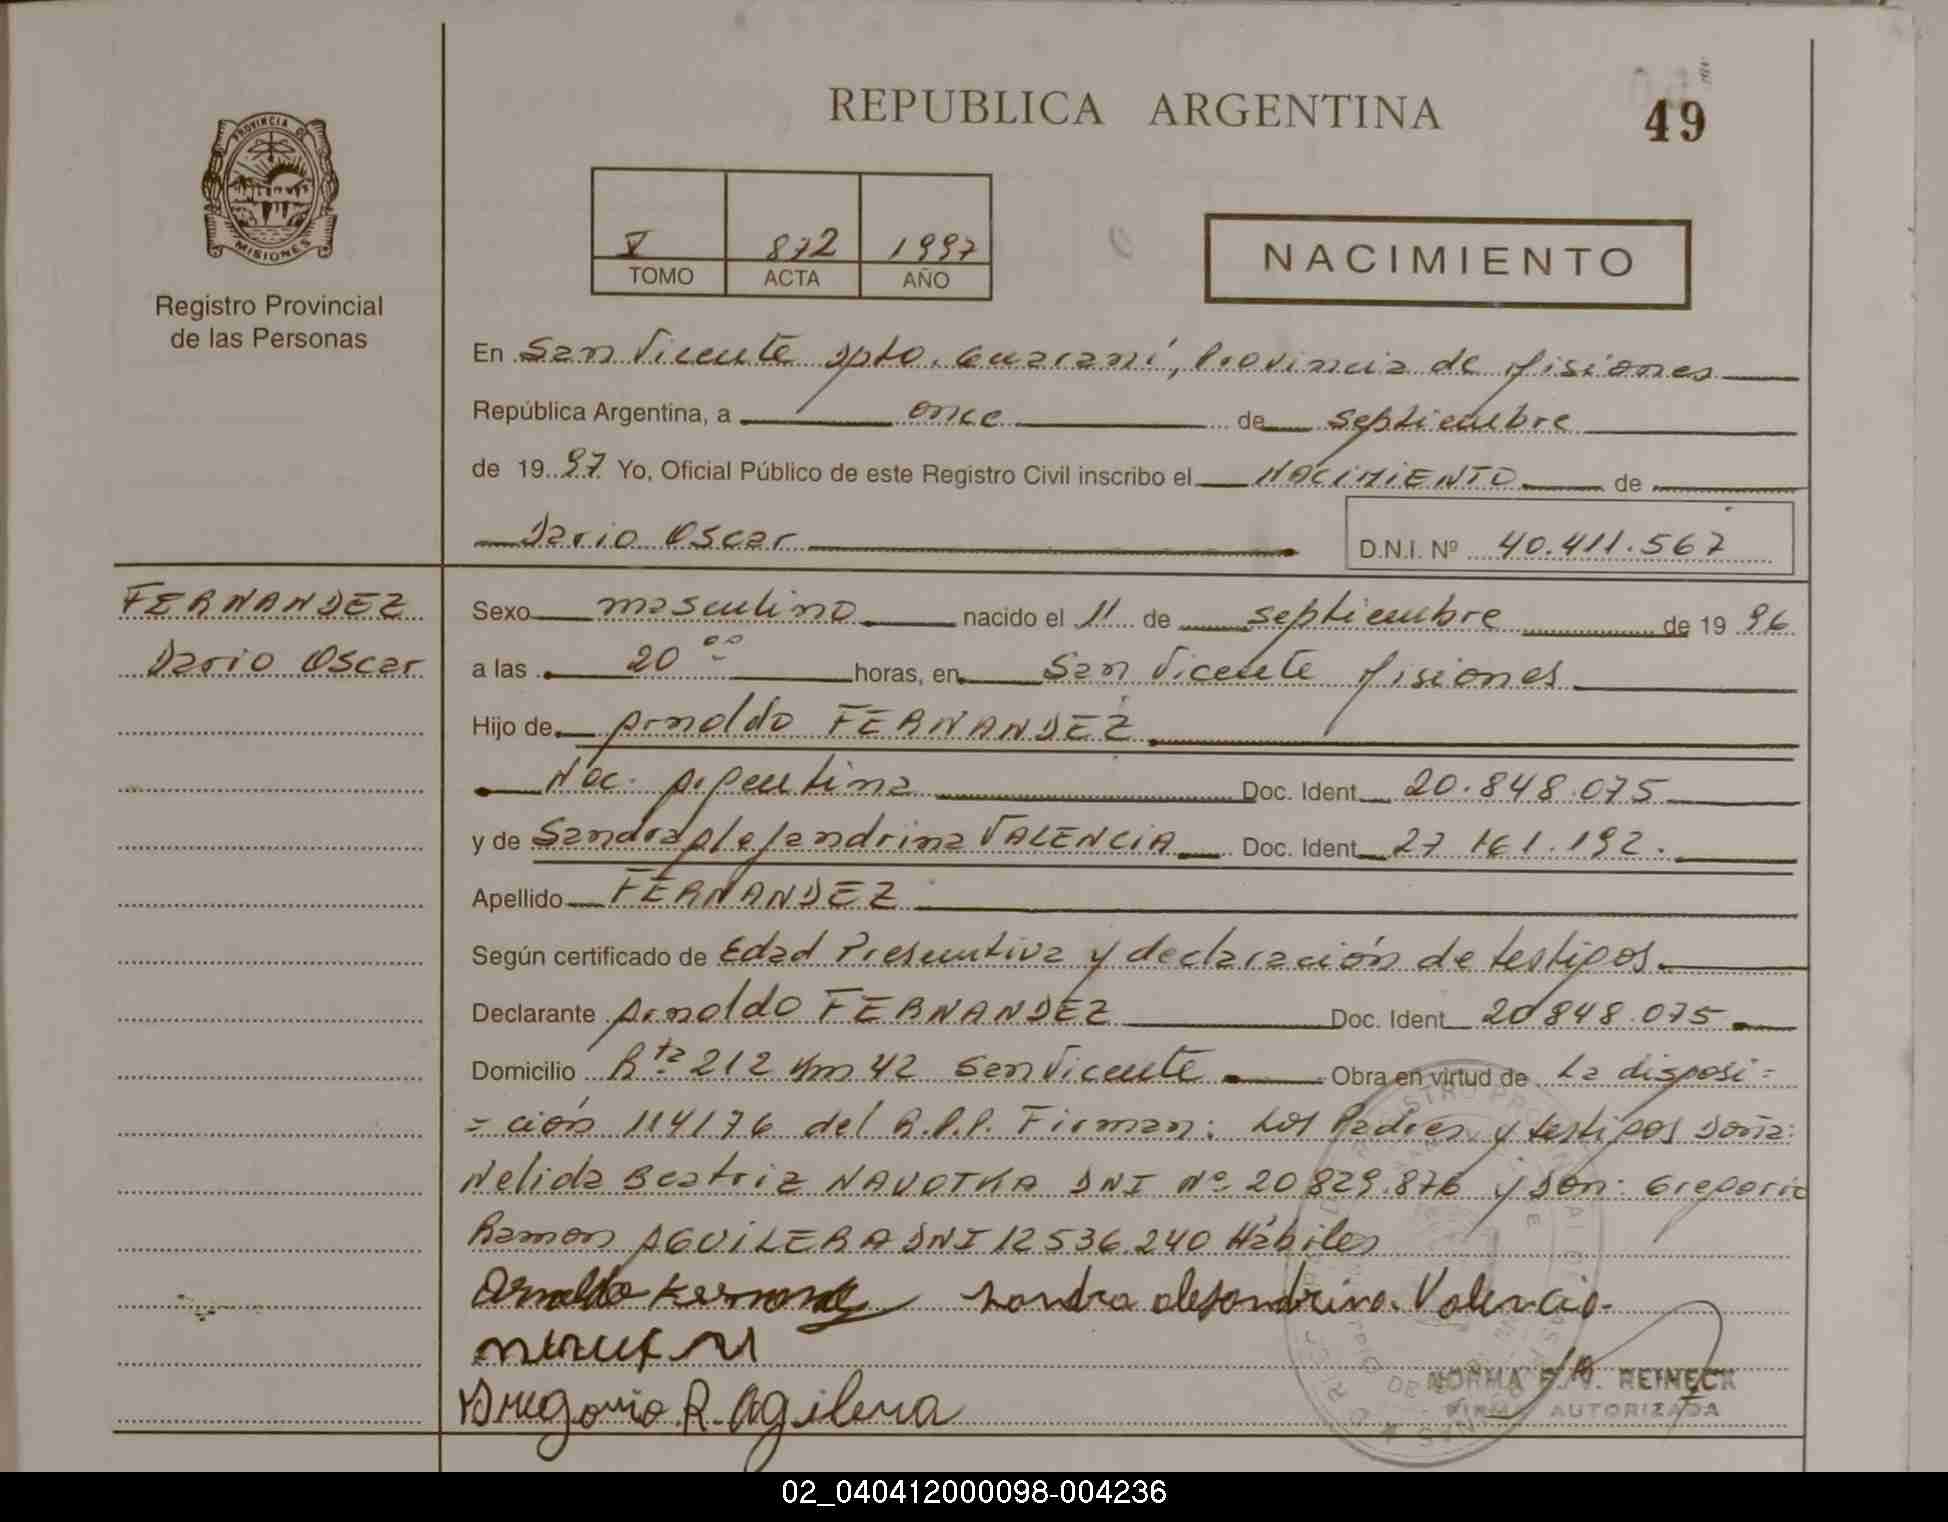 REPUBLICA ARGENTINA
49
PROVINCIA DE
MISIONES
Registro Provincial
de las Personas
V 872 1997
TOMO ACTA AÑO
NACIMIENTO
En San Vicente Dpto. Guaraní, Provincia de Misiones
República Argentina, a once de septiembre
de 1997 Yo, Oficial Público de este Registro Civil inscribo el NACIMIENTO de
Dario Oscar
D.N.I. Nº 40.411.567
FERNANDEZ
Dario Oscar
Sexo masculino nacido el 11 de septiembre de 1996
a las 20 00 horas, en San Vicente Misiones
Hijo de Arnoldo FERNANDEZ
Nac. Argentina Doc. Ident 20.848.075
y de Sandra Alejandrina VALENCIA Doc. Ident 27 161.192.
Apellido FERNANDEZ
Según certificado de Edad Presuntiva y declaración de testigos.
Declarante Arnoldo FERNANDEZ Doc. Ident 20848.075
Domicilio Rta 212 Km 42 San Vicente Obra en virtud de La disposi=
=ción 114176 del R.P.P. Firman: Los Padres y testigos Doña:
Nelida Beatriz NAVOTKA DNI Nº 20 829.876 y Don: Gregorio
Ramon AGUILERA DNI 12536.240 Hábiles
Sandra alejandrina. Valencia.
Gregorio R. Agilera
NORMA E. V. REINECK
FIRMA AUTORIZADA
02_040412000098-004236